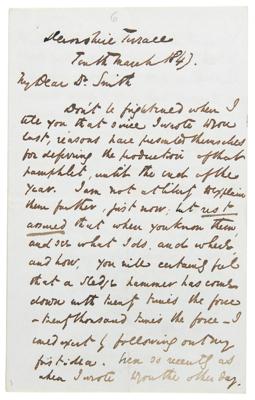 6
Devonshire Terrace
Tenth March 1843.
My Dear Dr Smith
Don't be frightened when I
tell you that since I wrote to you
last, reasons have presented themselves
for deferring the production of that
pamphlet, until the end of the
year. I am not at liberty to explain
them further, just now; but rest
assured that when you know them,
and see what I do, and where
and how, you will certainly feel
that a Sledge hammer has come
down with twenty times the force
– twenty thousand times the force – I
could exert by following out my
first idea. Even so recently as
when I wrote to you the other day.